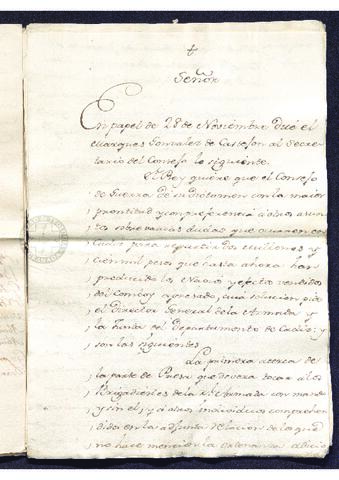 +
Señor
En papel de 28 de Noviembre dijo el
Marques Gonzalez de Castejon al Secre-
tario del Consejo lo siguiente.
El Rey quiere que el Consejo
, de Guerra dé su dictamen con la maior
, prontitud y con preferencia á otros asun-
, tos sobre varias dudas que ocurren en
Cadiz para repartir dos millones y
, cien mil pesos que hasta ahora han
, producido los Navios y efectos vendidos
, del Comboy apresado, cuia solucion pide
, el Director General de la Armada y
, la Junta del Departamento de Cadiz: y
, son las siguientes
La primera acerca de
, la parte de Presa que devera tocar a los
, Brigadieres de la Rl. Armada con mando
, y sin el; y á otros individuos comprehen
, didos en la adjunta relacion de los que
, no hace mencion la ordenanza adicio